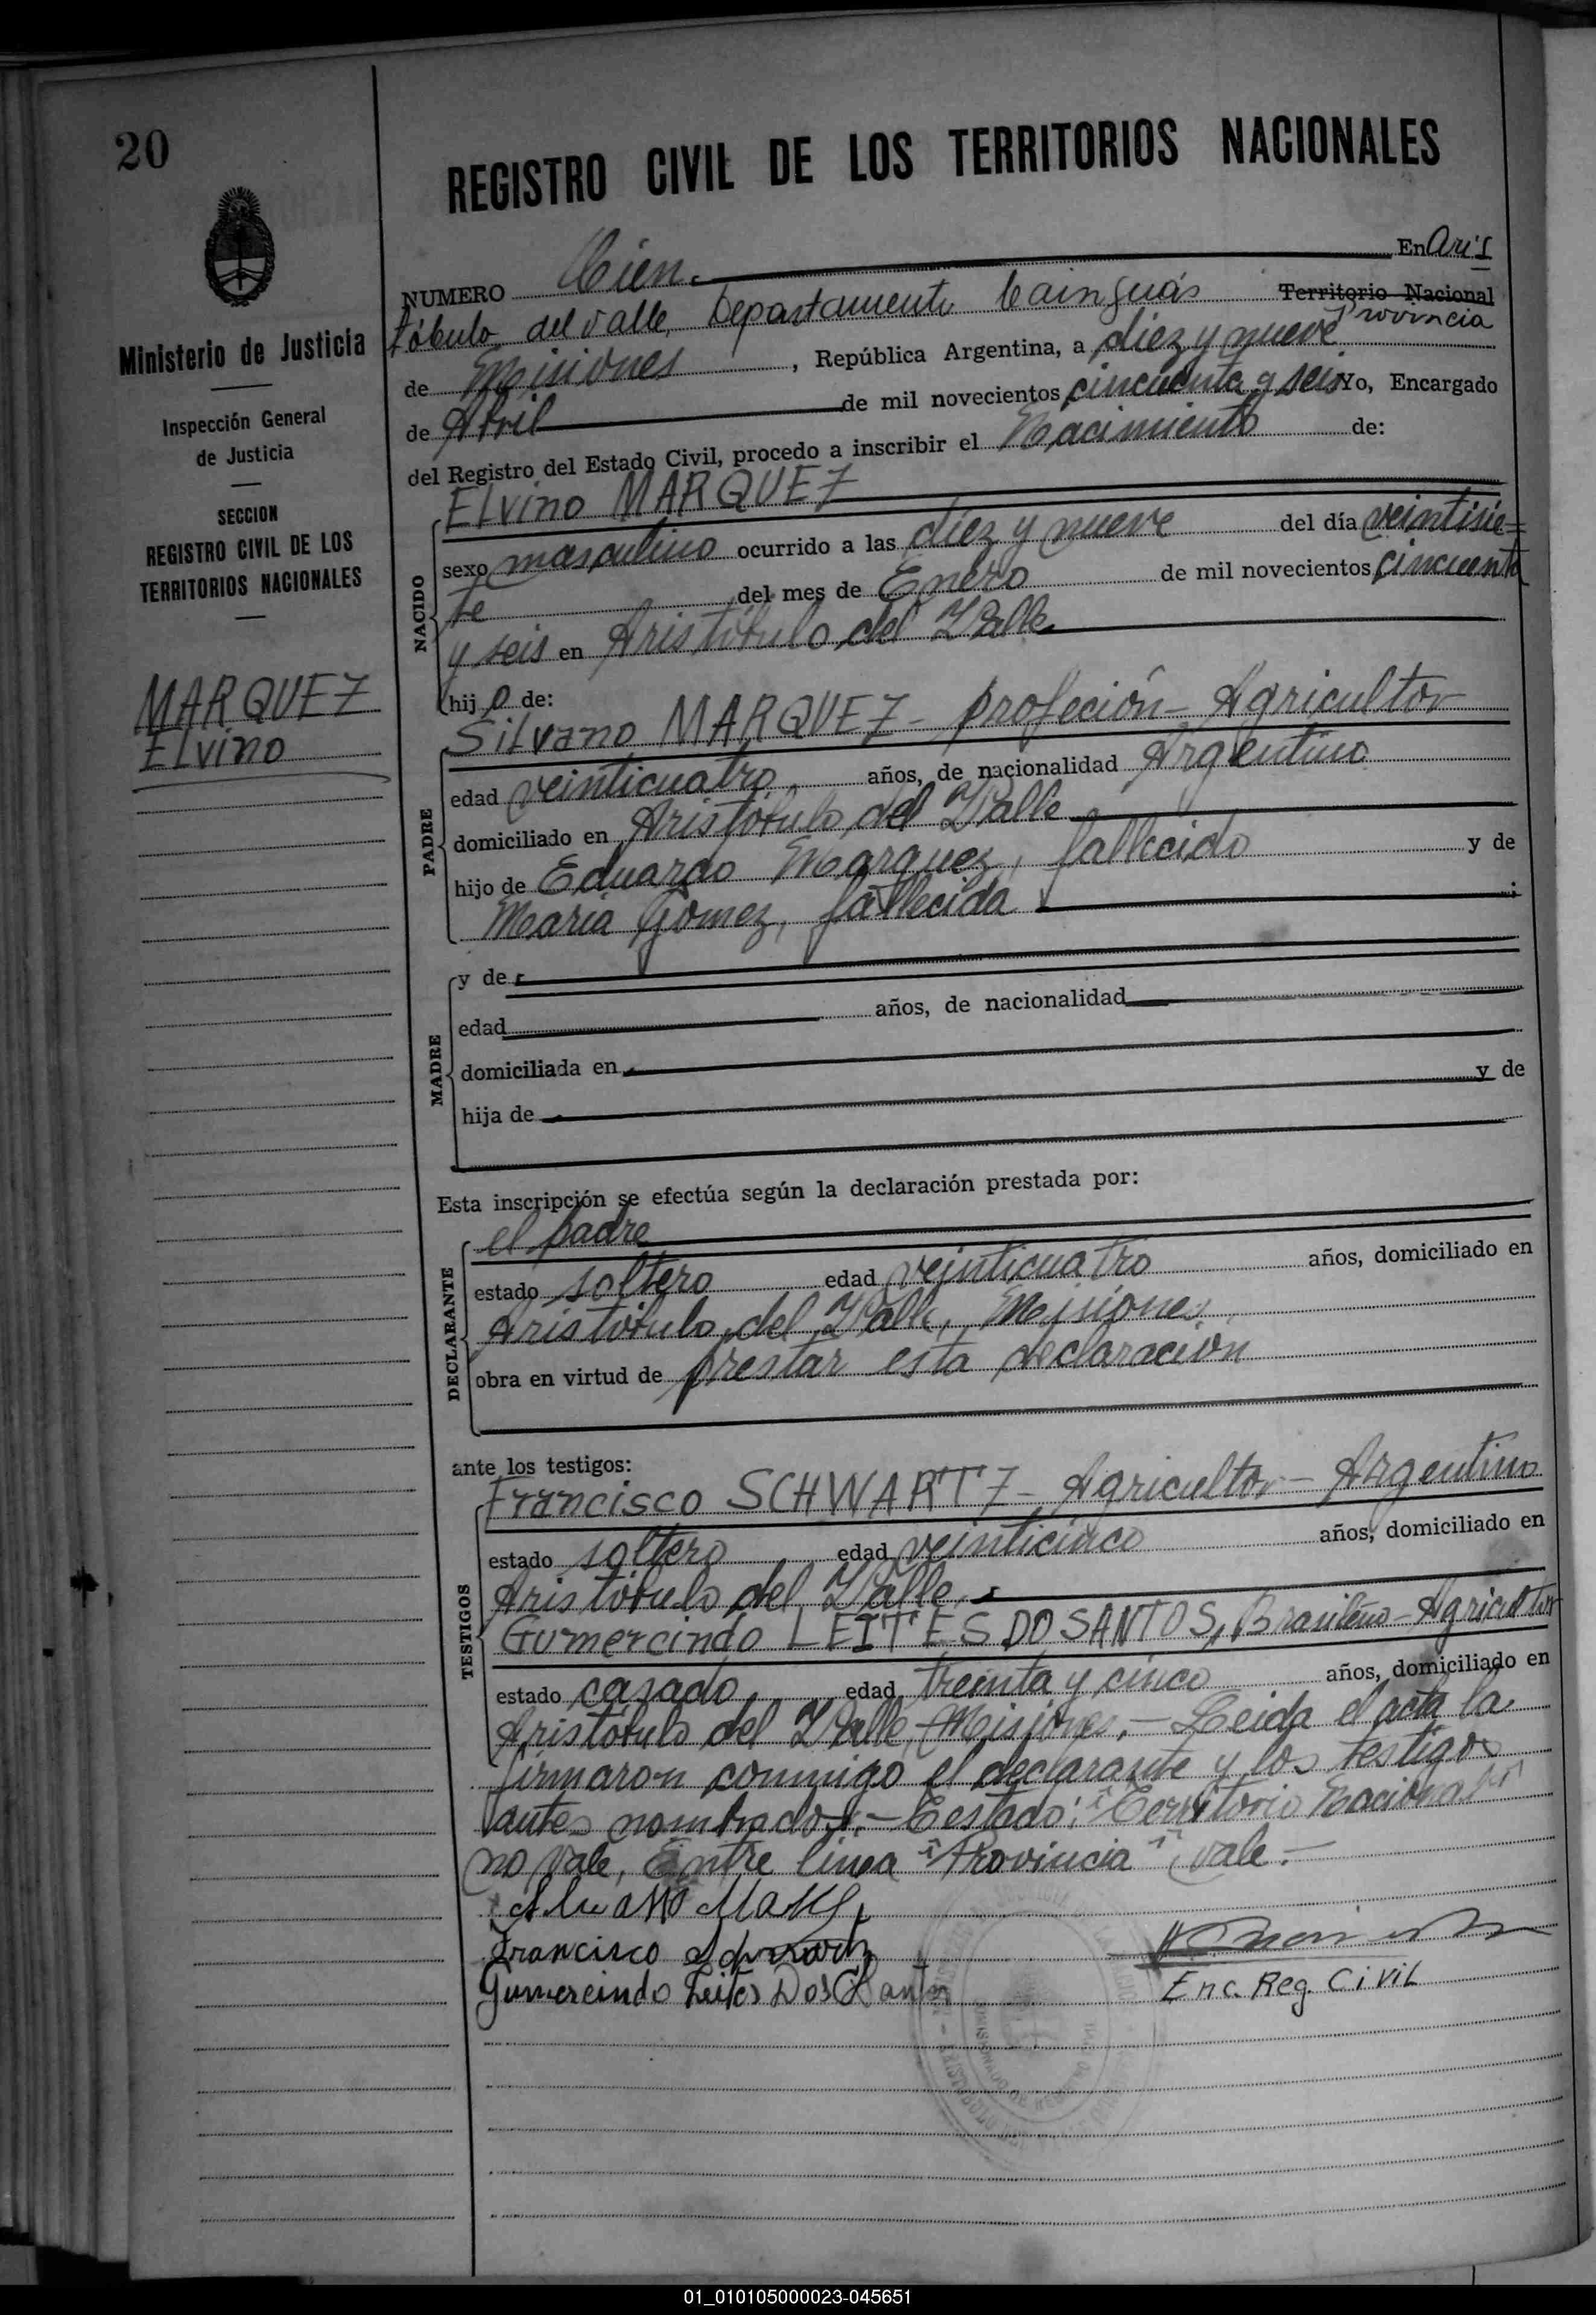 20
REGISTRO CIVIL DE LOS TERRITORIOS NACIONALES
Ministerio de Justicia
Inspección General
de Justicia
SECCION
REGISTRO CIVIL DE LOS
TERRITORIOS NACIONALES
MARQUEZ
Elvino
NUMERO Cien. En Aris
tóbulo del Valle, Departamento Cainguás Territorio Nacional
Provincia
de Misiones, República Argentina, a diez y nueve
de Abril de mil novecientos cincuenta y seis Yo, Encargado
del Registro del Estado Civil, procedo a inscribir el Nacimiento de:
NACIDO
Elvino MARQUEZ
sexo masculino ocurrido a las diez y nueve del día veintisie=
te del mes de Enero de mil novecientos cincuenta
y seis en Aristóbulo del Valle
hijo de:
PADRE
Silvano MARQUEZ - profeción - Agricultor
edad veinticuatro años, de nacionalidad Argentino
domiciliado en Aristóbulo del Valle
hijo de Eduardo Marquez, fallecido y de
María Gomez, fallecida ;
MADRE
y de
edad años, de nacionalidad
domiciliada en
hija de y de
Esta inscripción se efectúa según la declaración prestada por:
DECLARANTE
el padre
estado soltero edad veinticuatro años, domiciliado en
Aristóbulo del Valle, Misiones,
obra en virtud de prestar esta declaración
ante los testigos:
TESTIGOS
Francisco SCHWARTZ - Agricultor - Argentino
estado soltero edad veinticinco años, domiciliado en
Aristóbulo del Valle,
Gumercindo LEITES DO SANTOS, Brasileño - Agricultor
estado casado edad treinta y cinco años, domiciliado en
Aristóbulo del Valle, Misiones. - Leida el acta la
firmaron conmigo el declarante y los testigos
antes nombrados. - Testado: "Territorio Nacional"
no vale, Entre linea "Provincia" vale. -
Francisco Schwartz
Gumercindo Leites Dos Santos
Enc. Reg. Civil
01_010105000023-045651